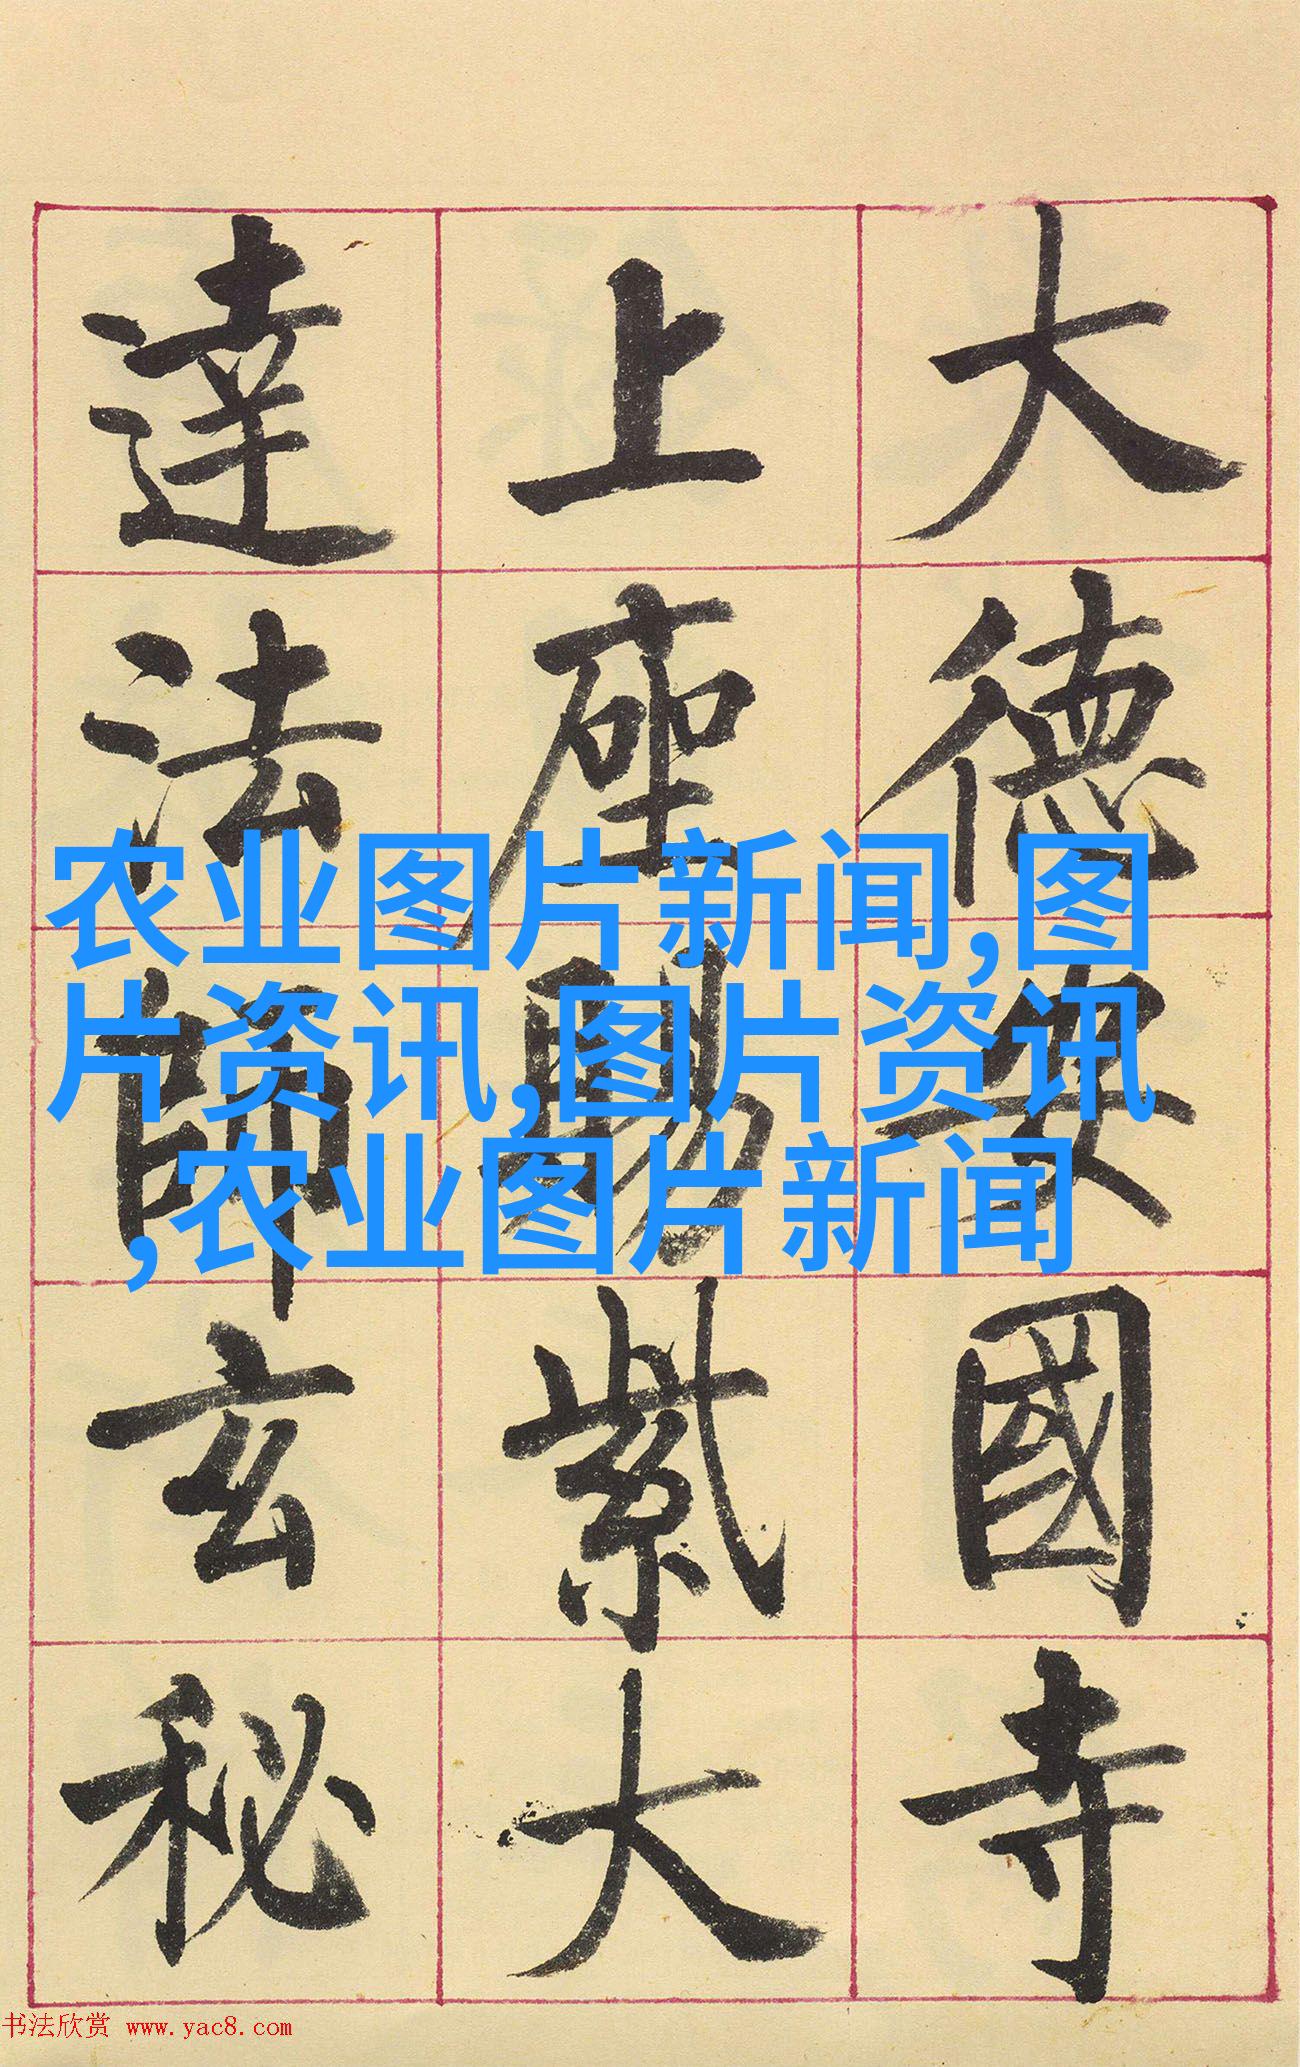 大德安國寺
上座賜紫大
達法師玄秘
农业图片新闻,图
片资讯,图片资讯
,农业图片新闻
书法欣赏 www.yac8.com